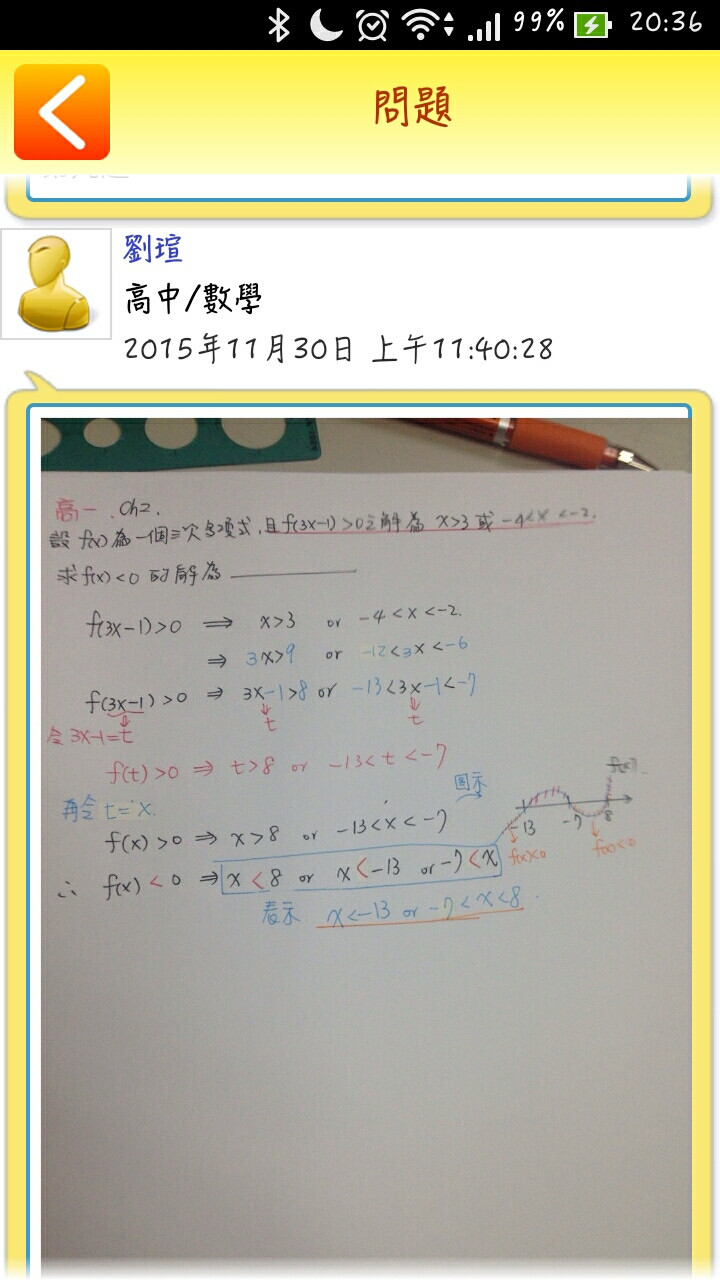 99% 20:36
問題
劉瑄
高中/數學
2015年11月30日 上午11:40:28
高一. Ch2.
設 f(x) 為一個三次多項式,且 f(3x-1)>0之解為 x>3 或 -4<x<-2.
求 f(x)<0 的解為
f(3x-1)>0 ⟹ x>3 or -4<x<-2.
⇒ 3x>9 or -12<3x<-6
f(3x-1)>0 ⇒ 3x-1>8 or -13<3x-1<-7
令 3x-1=t
t
t
f(t)>0 ⇒ t>8 or -13<t<-7
再令 t=x.
圖示
f(x)
f(x)>0 ⇒ x>8 or -13<x<-7
-13 -7 8
∴ f(x)<0 ⇒ x<8 or x<-13 or -7<x
f(x)<0 f(x)<0
表示 x<-13 or -7<x<8.